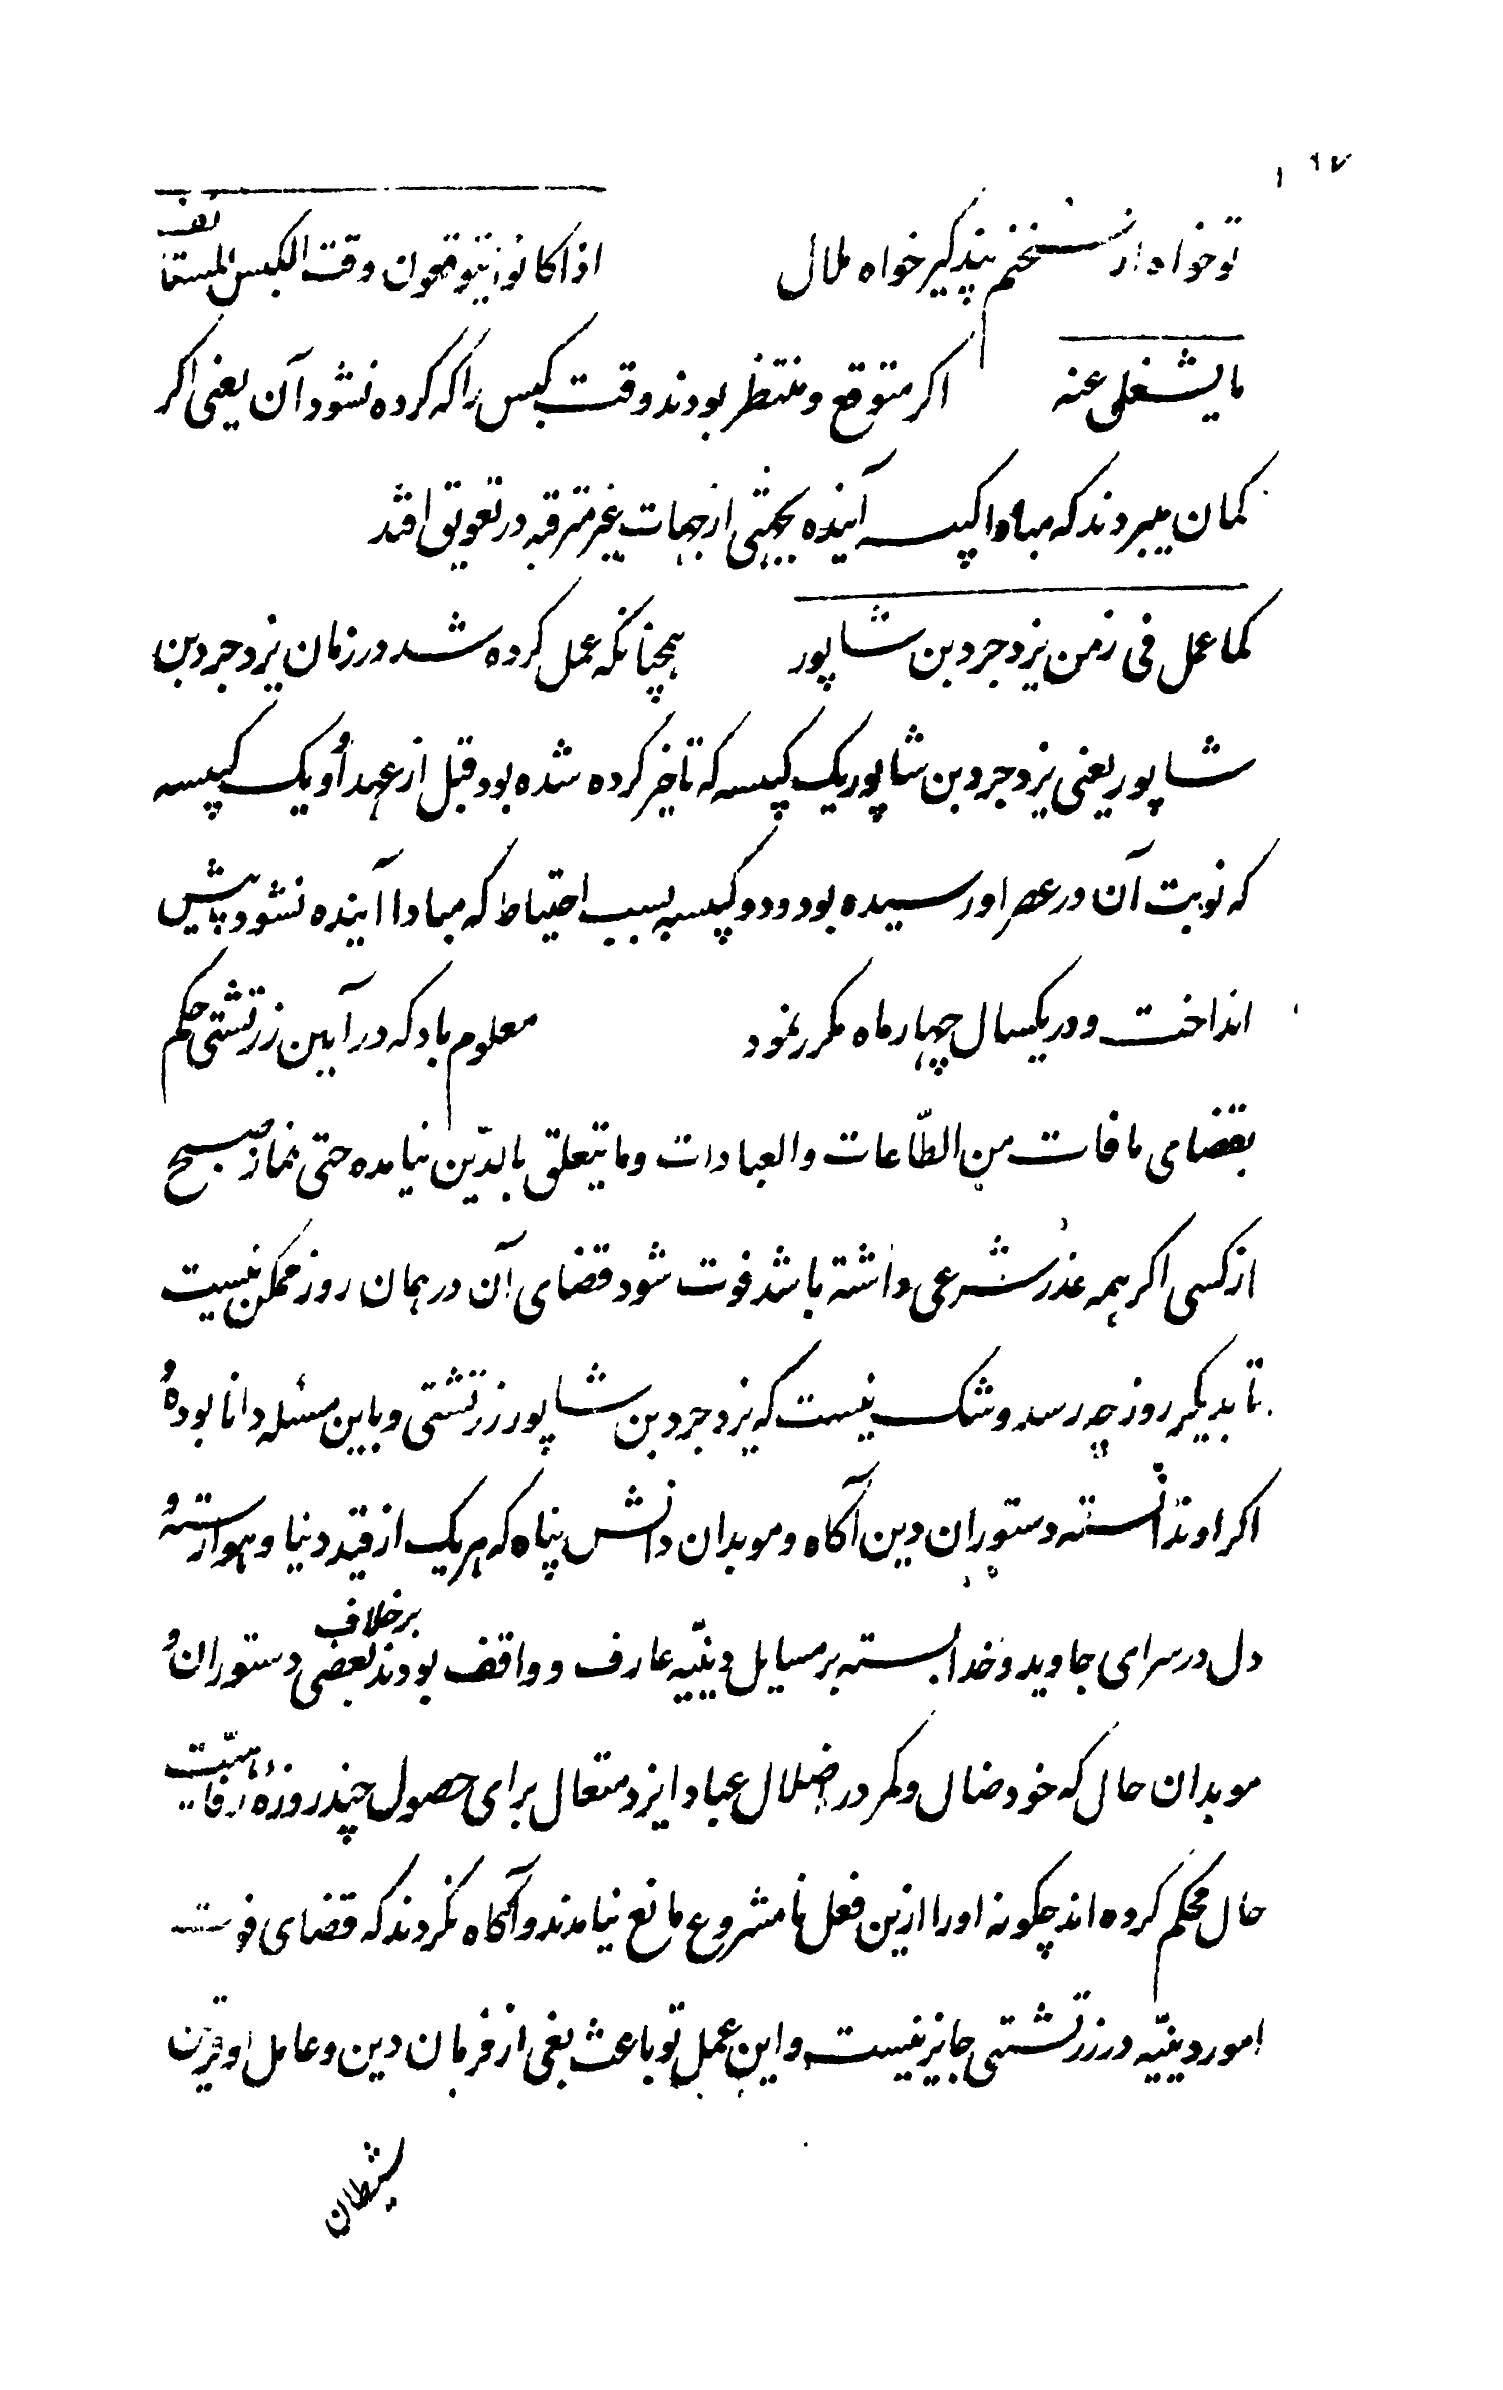 ۱۹۷
تو خواه از سخنم پند گیر خواه ملال اذا کانوا یتوقعون وقت الکبس المستانف
ما یشغلی عنه اکر متوقع و منتظر بودند وقت کبس را که کرده نشود آن یعنی اکر
کمان میبردند که مبادا کبیسه آینده بجهتی از جهات غیر مترقبه در تعویق افتد
کما عمل فی زمن یزدجرد بن شاپور همچنانکه عمل کرده شد در زمان یزدجرد بن
شاپور یعنی یزدجرد بن شاپور یک کپیسه که تاخیر کرده شده بود قبل از عهد او و یک کپیسه
که نوبت آن در عصر او رسیده بود و دو کپیسه بسبب احتیاط که مبادا آینده نشود پیش
انداخت و در یکسال چهار ماه مکرر نمود معلوم باد که در آیین زرتشتی حکم
بقضای ما فات من الطّاعات والعبادات وما یتعلق بالدّین نیامده حتی نماز صبح
از کسی اکر همه عذر شرعی داشته باشد فوت شود قضای آن در همان روز ممکن نیست
تا بدیکر روز چه رسد و شک نیست که یزدجرد بن شاپور زرتشتی و باین مسئله دانا بوده و
اکر او ندانسته دستوران دین آکاه و موبدان دانش پناه که هر یک از قید دنیا و هوا رسته و
دل در سرای جاوید و خدا بسته بر مسایل دینیّه عارف و واقف بودند برخلاف بعضی دستوران و
موبدان حال که خود ضال و کمر در اضلال عباد ایزد متعال برای حصول چند روزه رفاهیّت
حال محکم کرده اند چکونه او را ازین فعل نا مشروع مانع نیامدند و آکاه نکردند که قضای فوت
امور دینیّه در زرتشتی جایز نیست و این عمل تو باعث بغی از فرمان دین و عامل او قرین
شیطان